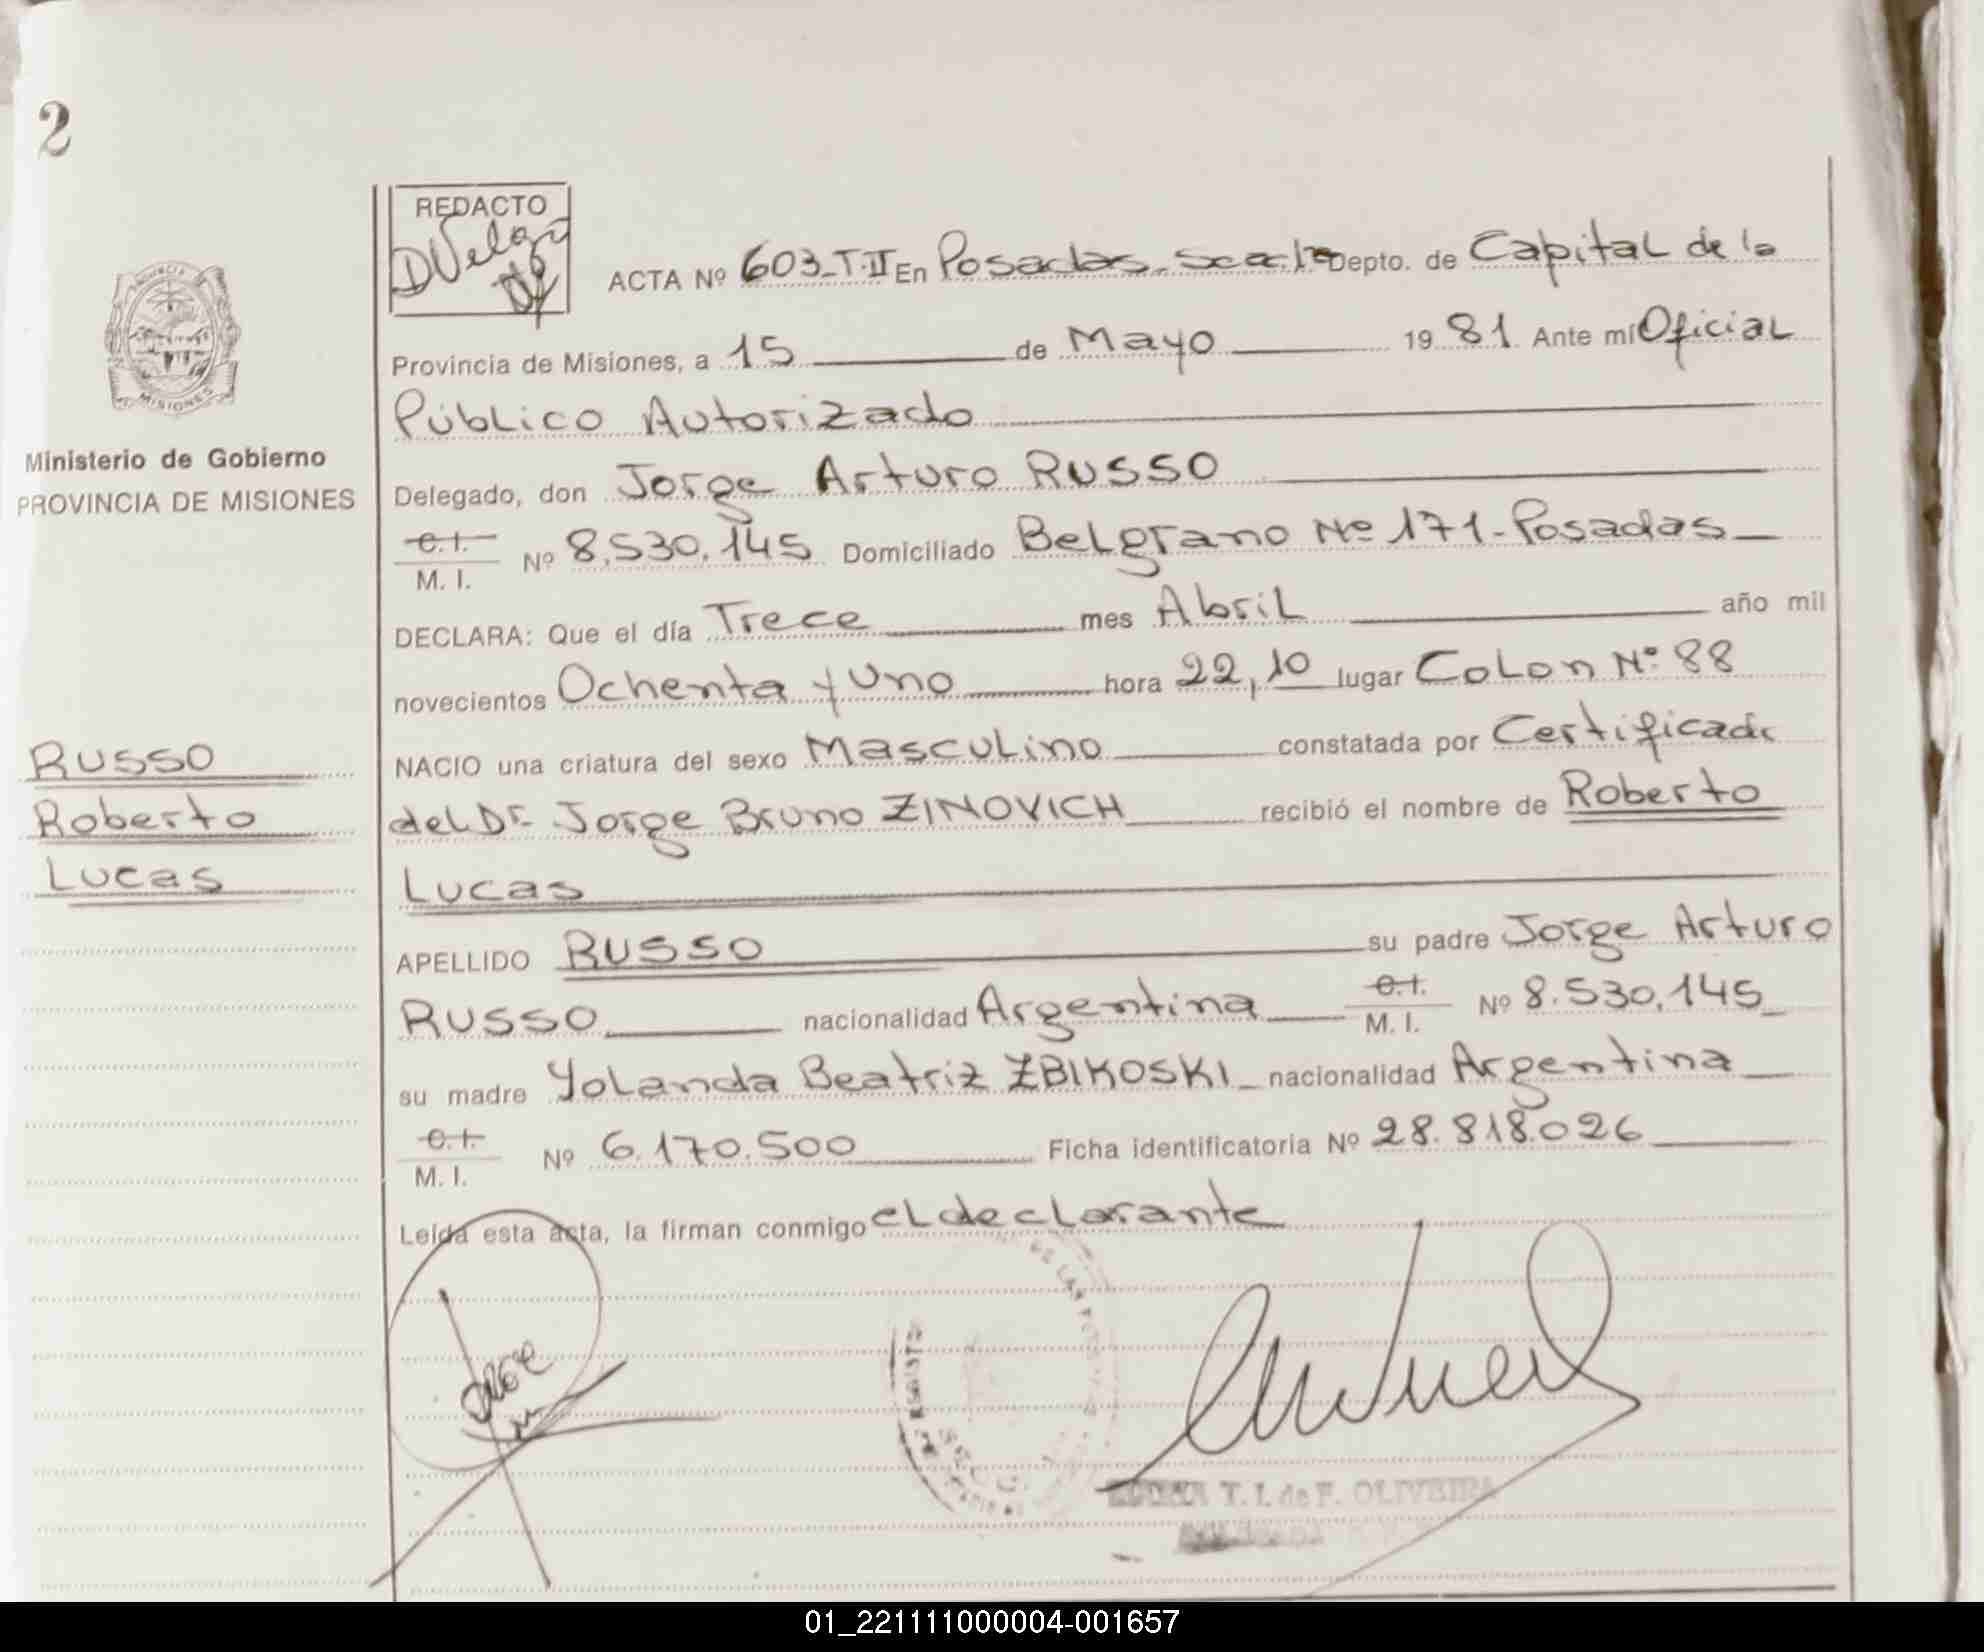 2
REDACTO
ACTA Nº 603-T.II En Posadas. Depto. de Capital de la
Provincia de Misiones, a 15 de Mayo 1981. Ante mí Oficial
Público Autorizado
Ministerio de Gobierno
PROVINCIA DE MISIONES
MISIONES
Delegado, don Jorge Arturo RUSSO
C.I.
M. I. Nº 8.530.145 Domiciliado Belgrano Nº 171-Posadas
DECLARA: Que el día Trece mes Abril año mil
novecientos Ochenta y Uno hora 22,10 lugar Colon Nº 88
NACIO una criatura del sexo Masculino constatada por Certificado
del Dr. Jorge Bruno ZINOVICH recibió el nombre de Roberto
Lucas
RUSSO
Roberto
Lucas
APELLIDO RUSSO su padre Jorge Arturo
RUSSO nacionalidad Argentina C.I.
M. I. Nº 8.530.145
su madre Yolanda Beatriz ZBIKOSKI nacionalidad Argentina
C.I.
M. I. Nº 6.170.500 Ficha identificatoria Nº 28.818.026
Leída esta acta, la firman conmigo el declarante
T. I. de F. OLIVEIRA
01_221111000004-001657